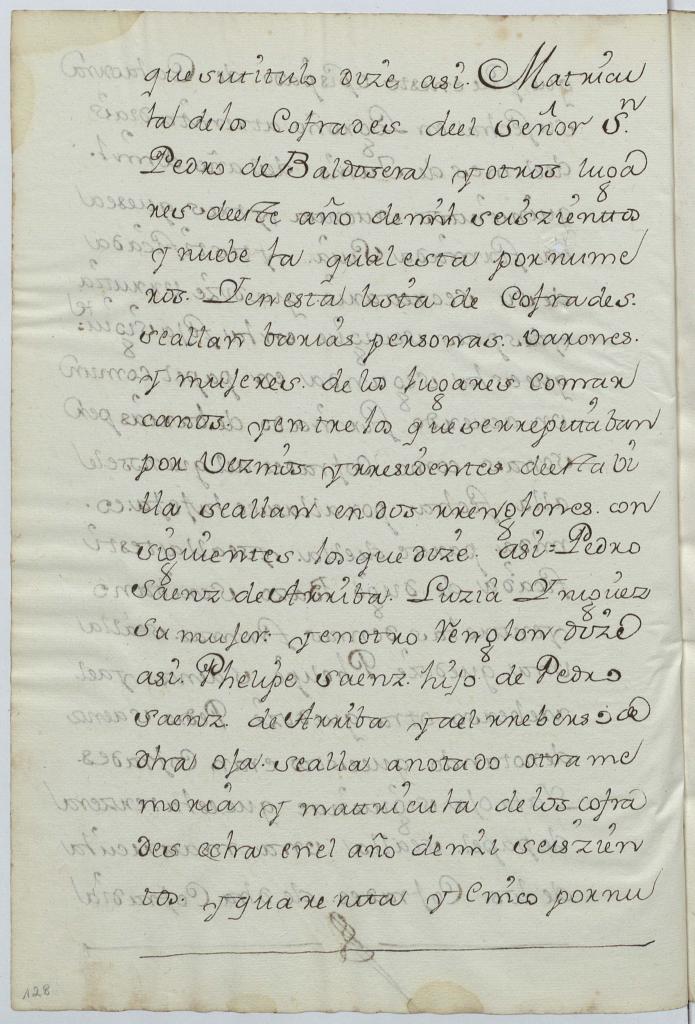 que su titulo dize asi. Matricu
la de los Cofrades deel señor Sⁿ.
Pedro de Baldosera y otros luga
res deeste año demil seiszientos
y nuebe la qual esta por nume
ros. Y en esta lista de Cofrades.
seallan barias personas. varones.
y mujeres. de los lugares comar
canos. y entre los que se rreputaban
por Vezinos y rresidentes deesta Vi
lla seallan en dos rrenglones. con
siguientes los que dize. asi = Pedro
Saenz de Arriba. Luzia Yniguez
su mujer. y en otro Renglon dize
asi. Phelipe Saenz. hijo de Pedro
Saenz. de Arriba y a el rreberso de
dha oja. sealla anotado otra me
moria y mattricula de los cofra
des echa en el año demil seiszien
tos. y quarenta y Cinco por nu
128